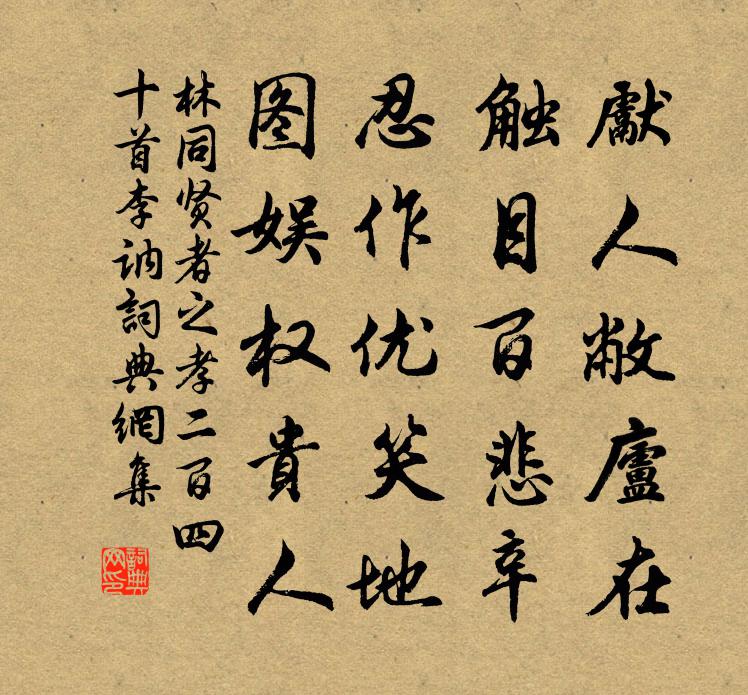 獻人敝廬在
触目百悲辛
忍作优笑地
图娱权貴人
林同贤者之孝二百四
十首李讷詞典網集
詞典
网印